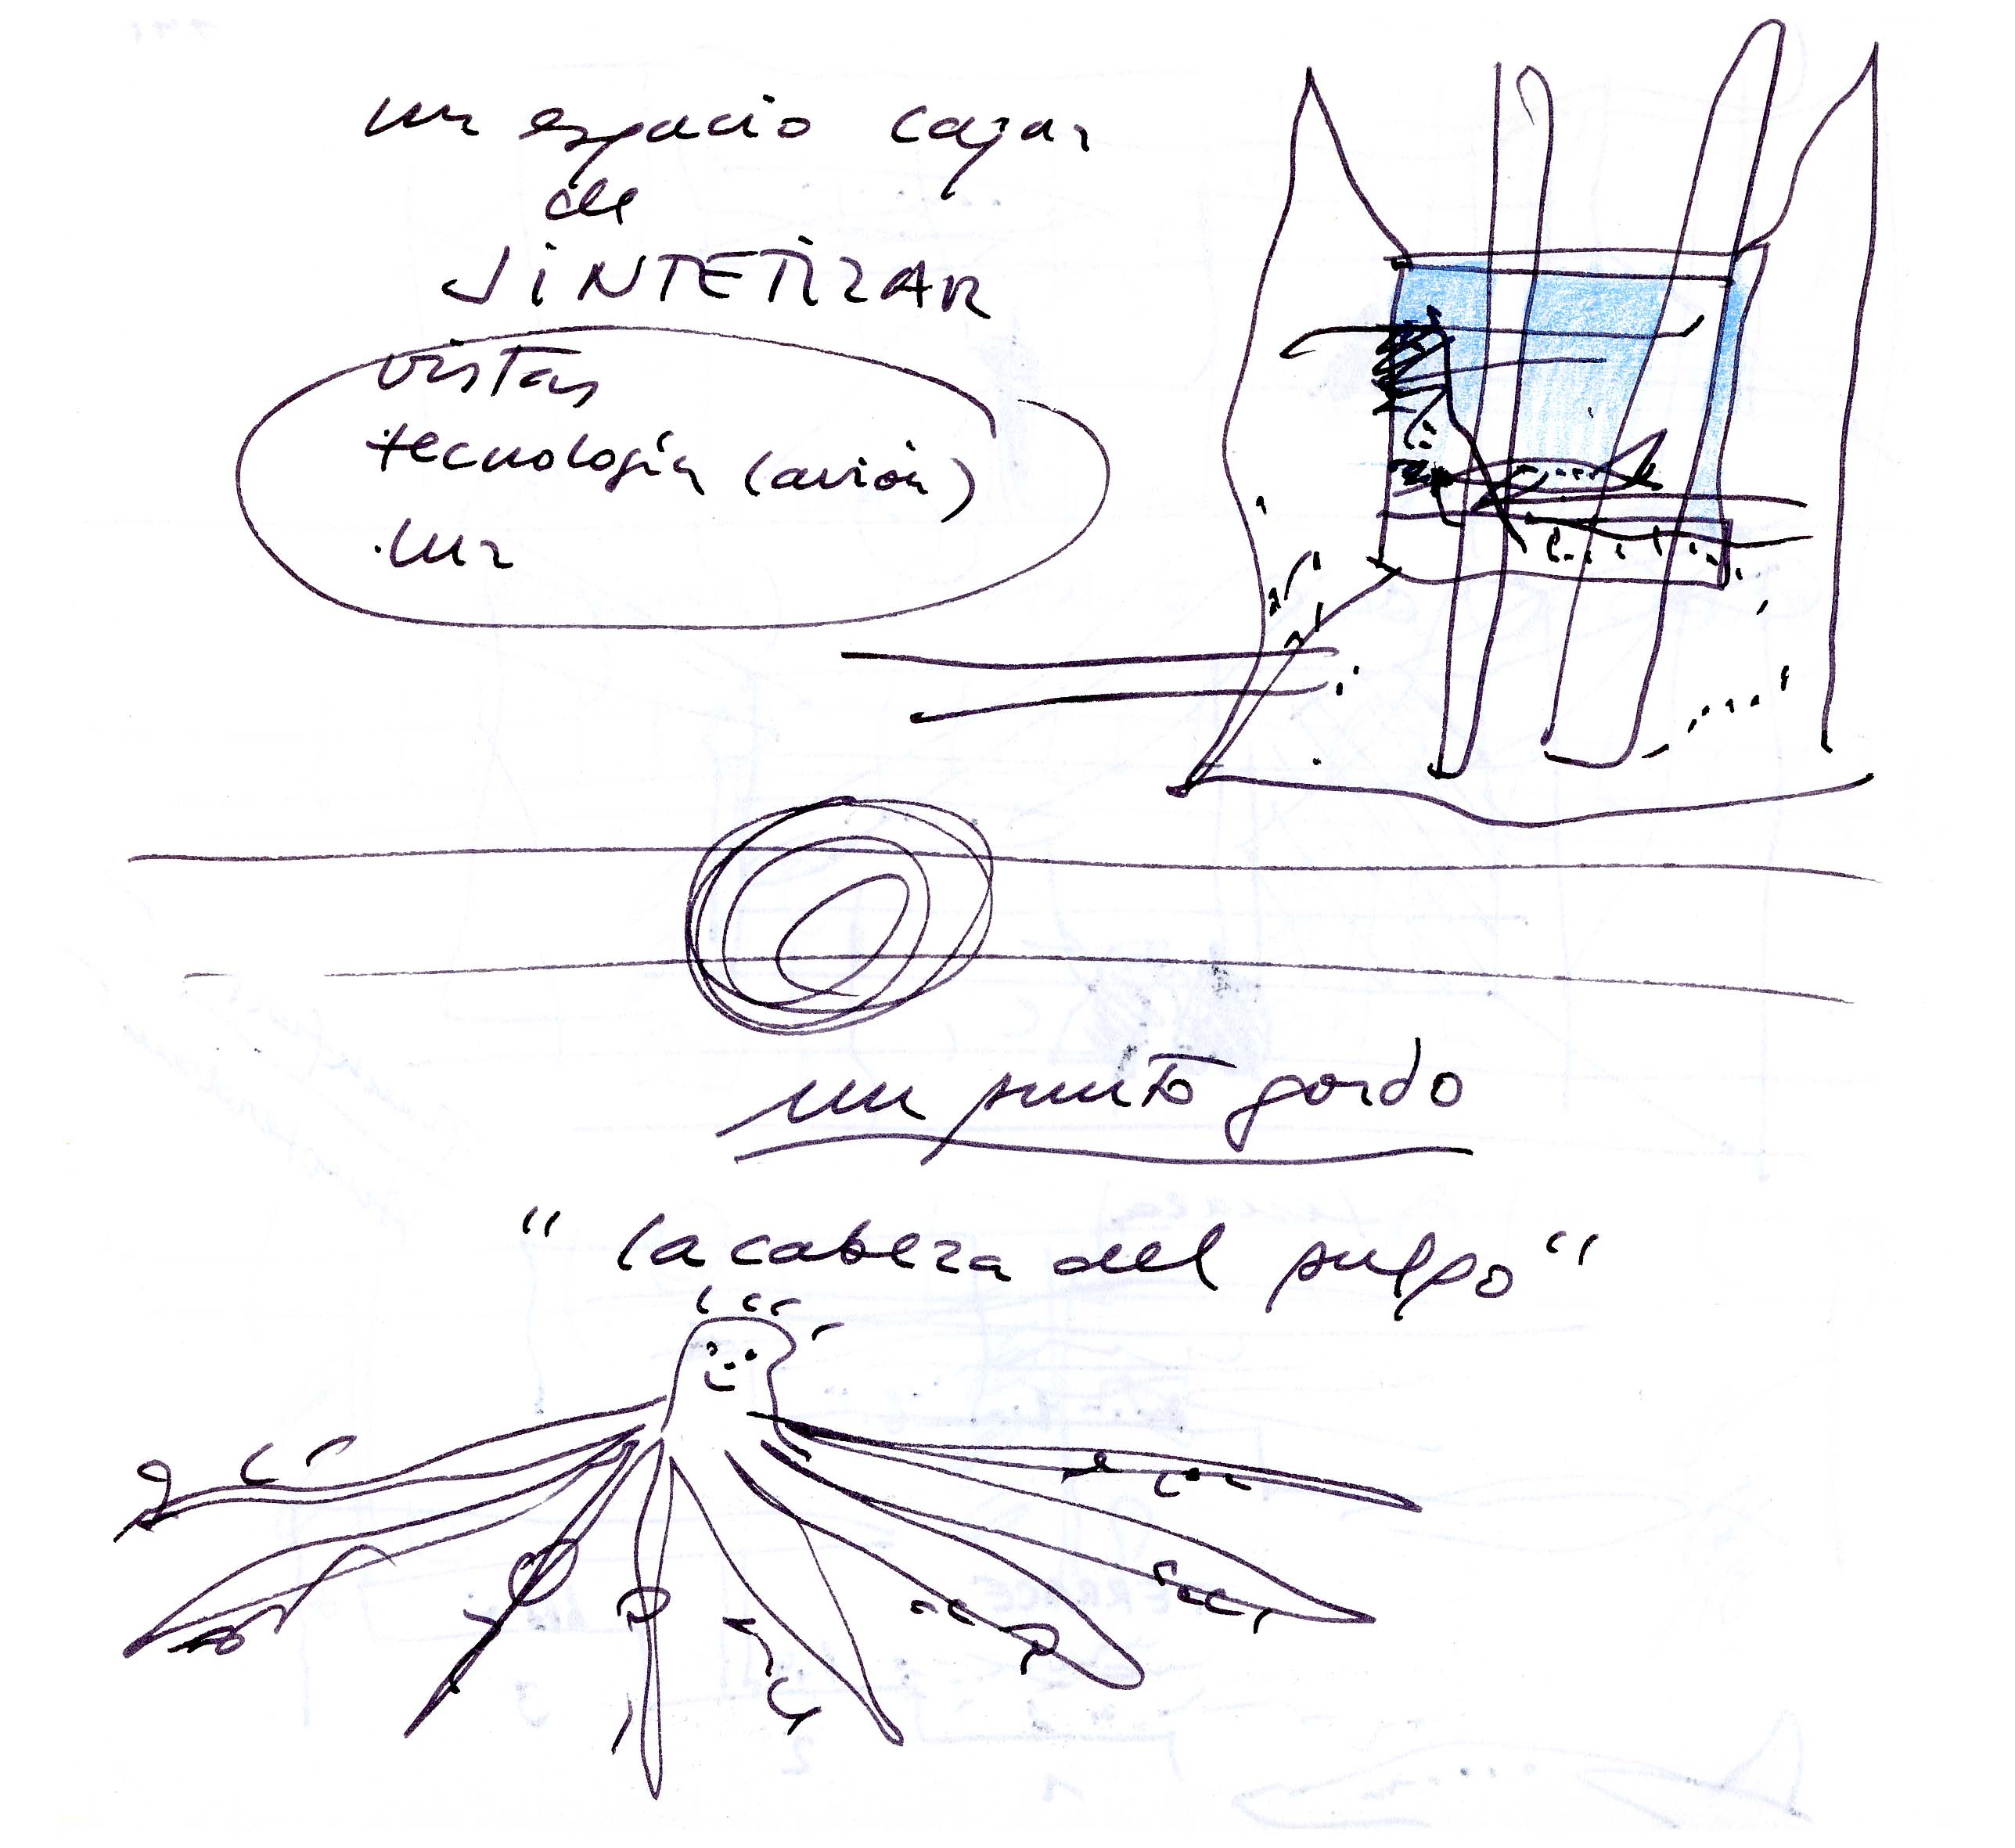 un espacio capaz
de
SINTETIZAR
vistas
tecnología (avión)
.luz
un punto gordo
"la cabeza del pulpo"